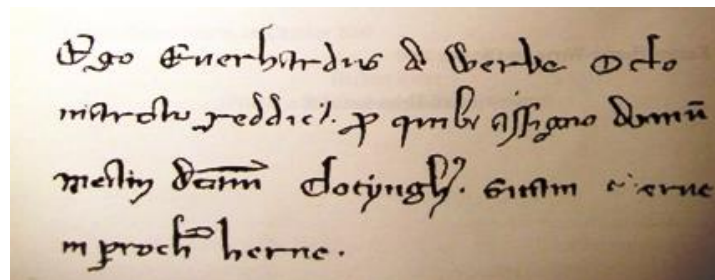 Ego Euerhardus de Werve Octo
marcaru reddit. p quib assigno domu
meam dcam Dotyngh. sitam
in proch herne.